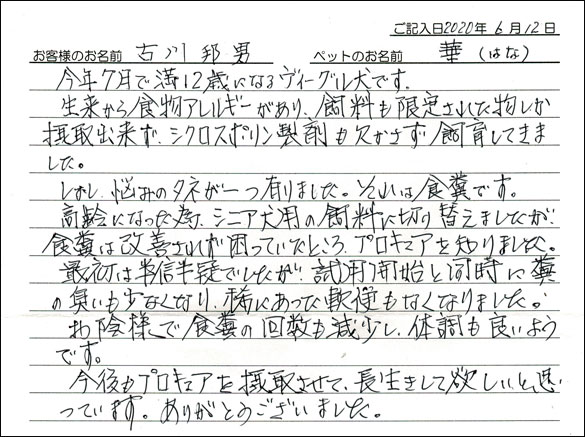 ご記入日2020年6月12日
お客様のお名前 古川邦男 ペットのお名前 華(はな)
今年7月で満12歳になるヴィーグル犬です。
生来から食物アレルギーがあり、飼料も限定された物しか
摂取出来ず、シクロスポリン製剤も欠かさず飼育してきま
した。
しかし、悩みのタネが一つ有りました。それは食糞です。
高齢になった為、シニア犬用の飼料に切り替えましたが、
食糞は改善されず困っていたところ、プロキュアを知りました。
最初は半信半疑でしたが、試用開始と同時に糞
の臭いも少なくなり、稀にあった軟便もなくなりました。
お陰様で食糞の回数も減少し、体調も良いよう
です。
今後もプロキュアを摂取させて、長生きして欲しいと思
っています。ありがとうございました。